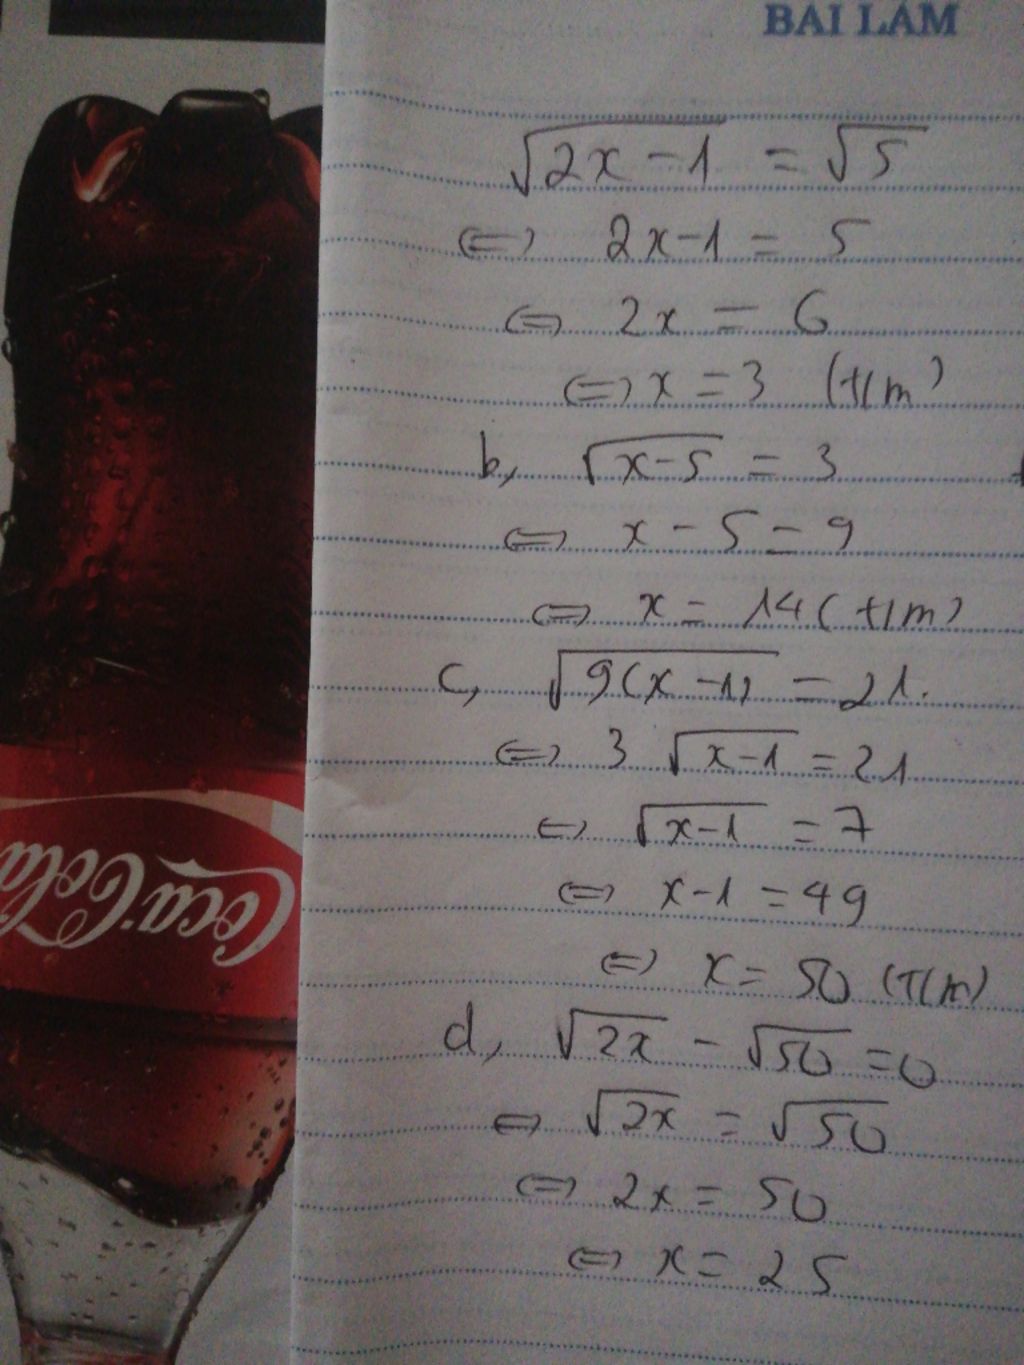 BÀI LÀM
√(2x-1) = √5
⇔ 2x-1 = 5
⇔ 2x = 6
⇔ x = 3 (t/m)
b, √(x-5) = 3
⇔ x - 5 = 9
⇔ x = 14 (t/m)
c, √(9(x-1)) = 21.
⇔ 3 √(x-1) = 21
⇔ √(x-1) = 7
⇔ x-1 = 49
⇔ x = 50 (T/m)
d, √(2x) - √50 = 0
⇔ √(2x) = √50
⇔ 2x = 50
⇔ x = 25
Coca-Cola